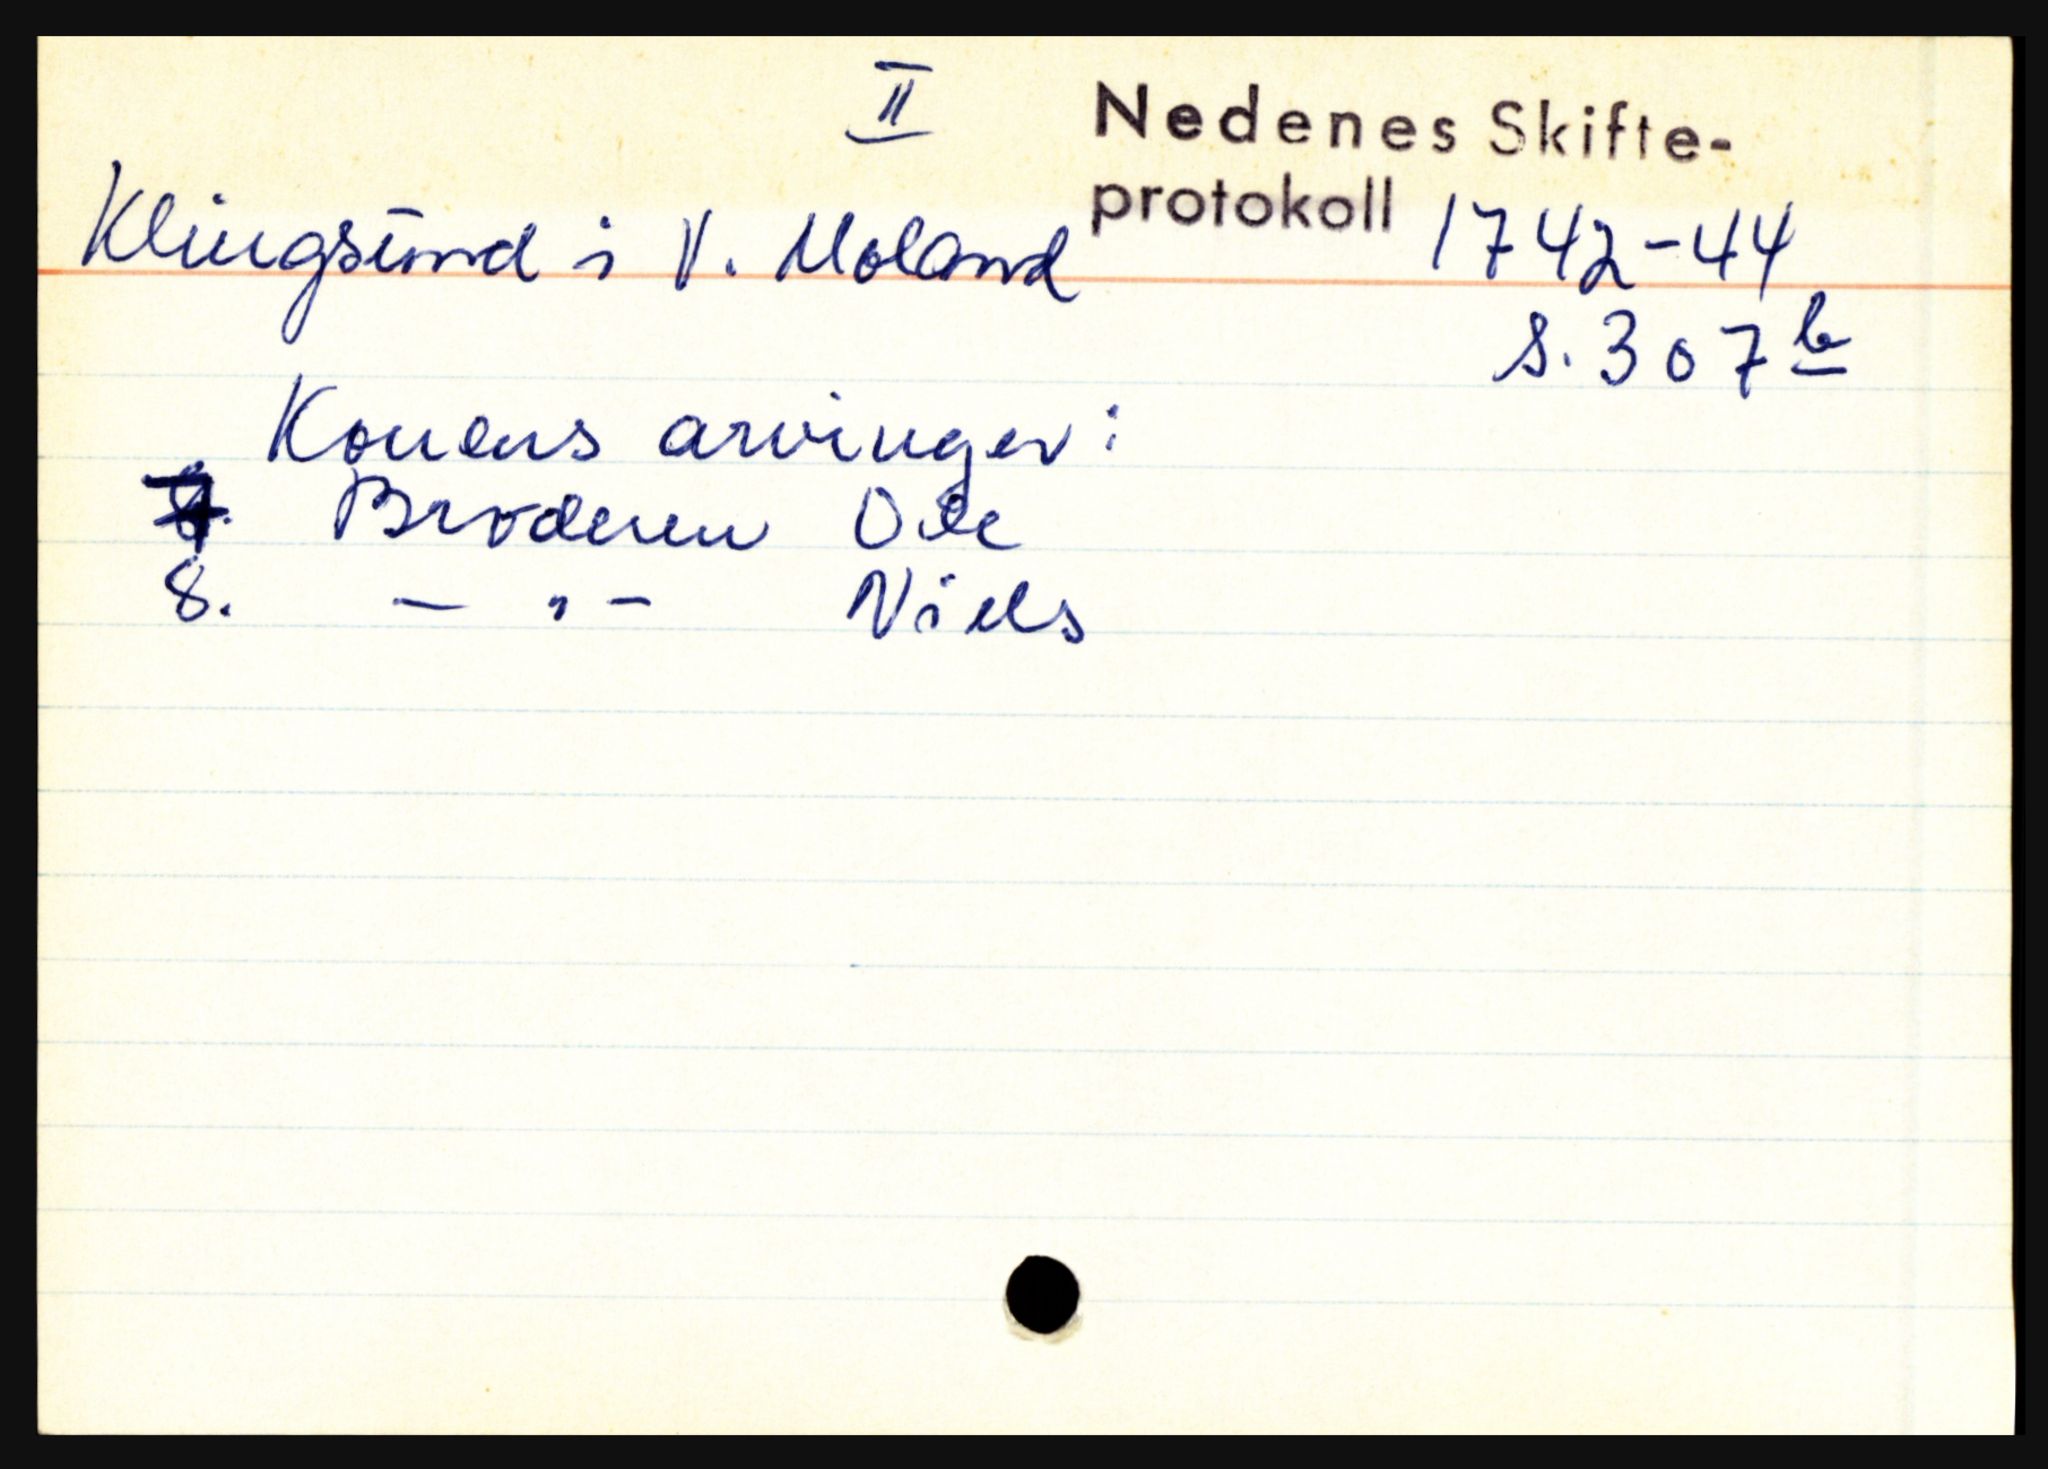 II
Nedenes Skifte-
protokoll 1742-44
Klingsund i V. Moland
s. 307 b
Konens arvinger:
7. Broderen Ole
8. - " - Niels